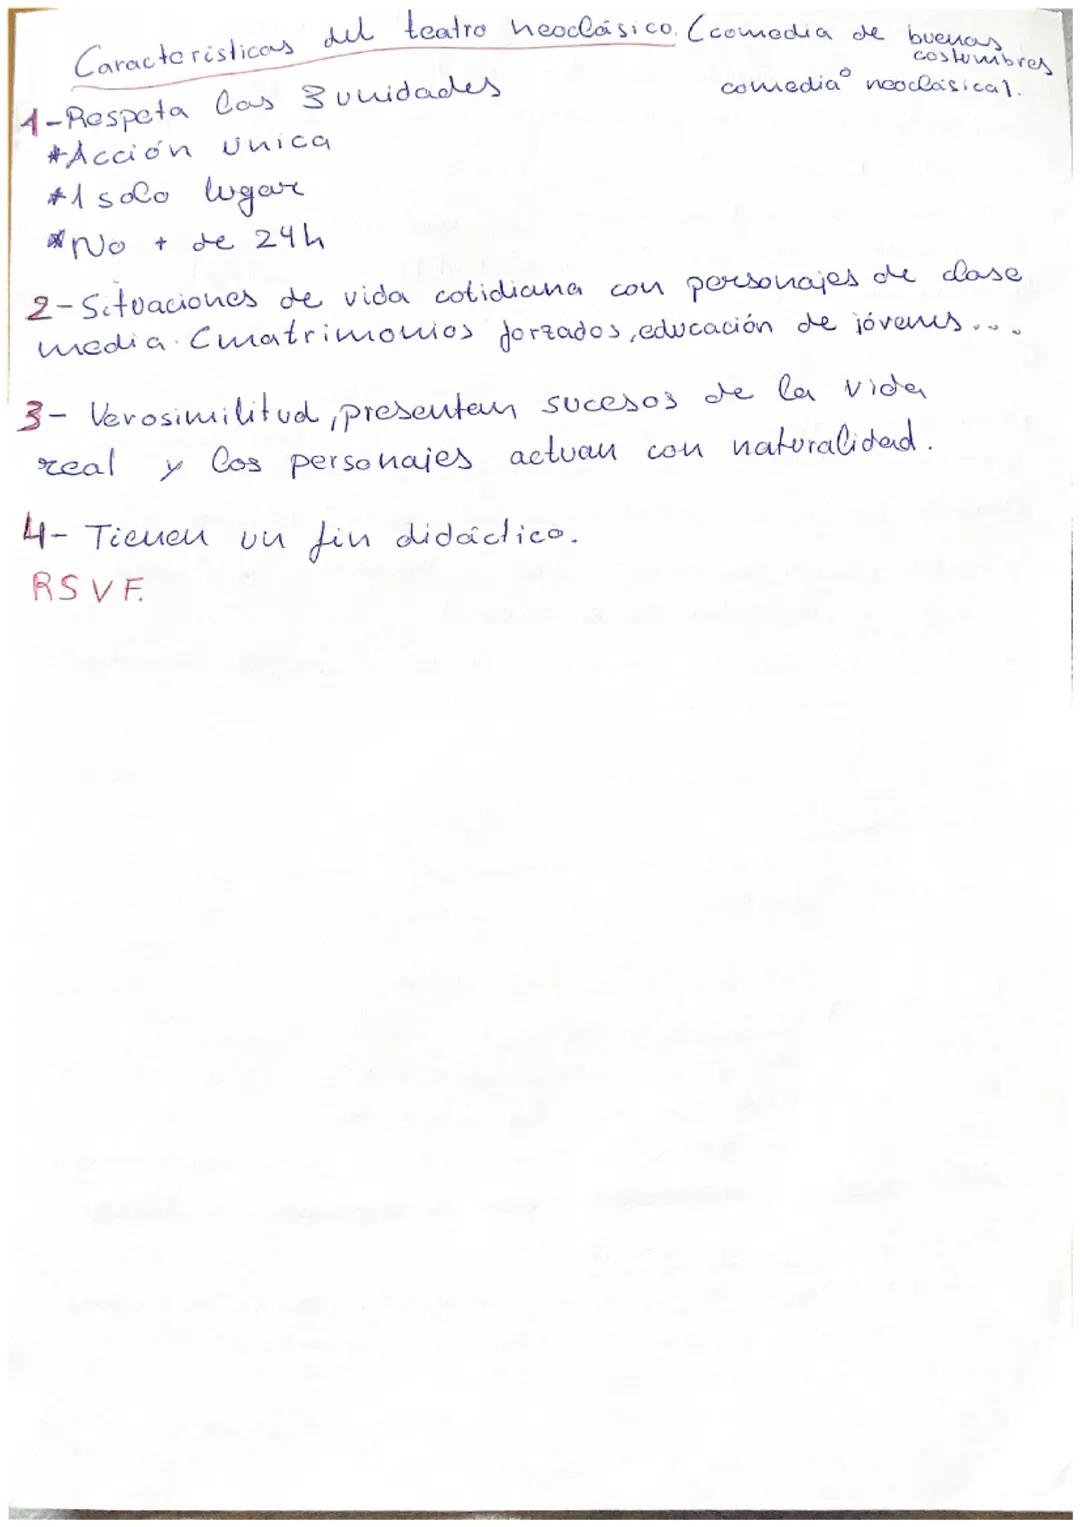 Características del teatro neoclásico. (comedia de buenas costumbres
comedia o neoclásica).
1-Respeta las 3 unidades
*Acción única
*1 solo lugar
*No + de 24h
2-Situaciones de vida cotidiana con personajes de clase
media. (matrimonios forzados, educación de jóvenes....
3- Verosimilitud, presentan sucesos de la vida
real y los personajes actuan con naturalidad.
4- Tienen un fin didáctico.
RSVF.